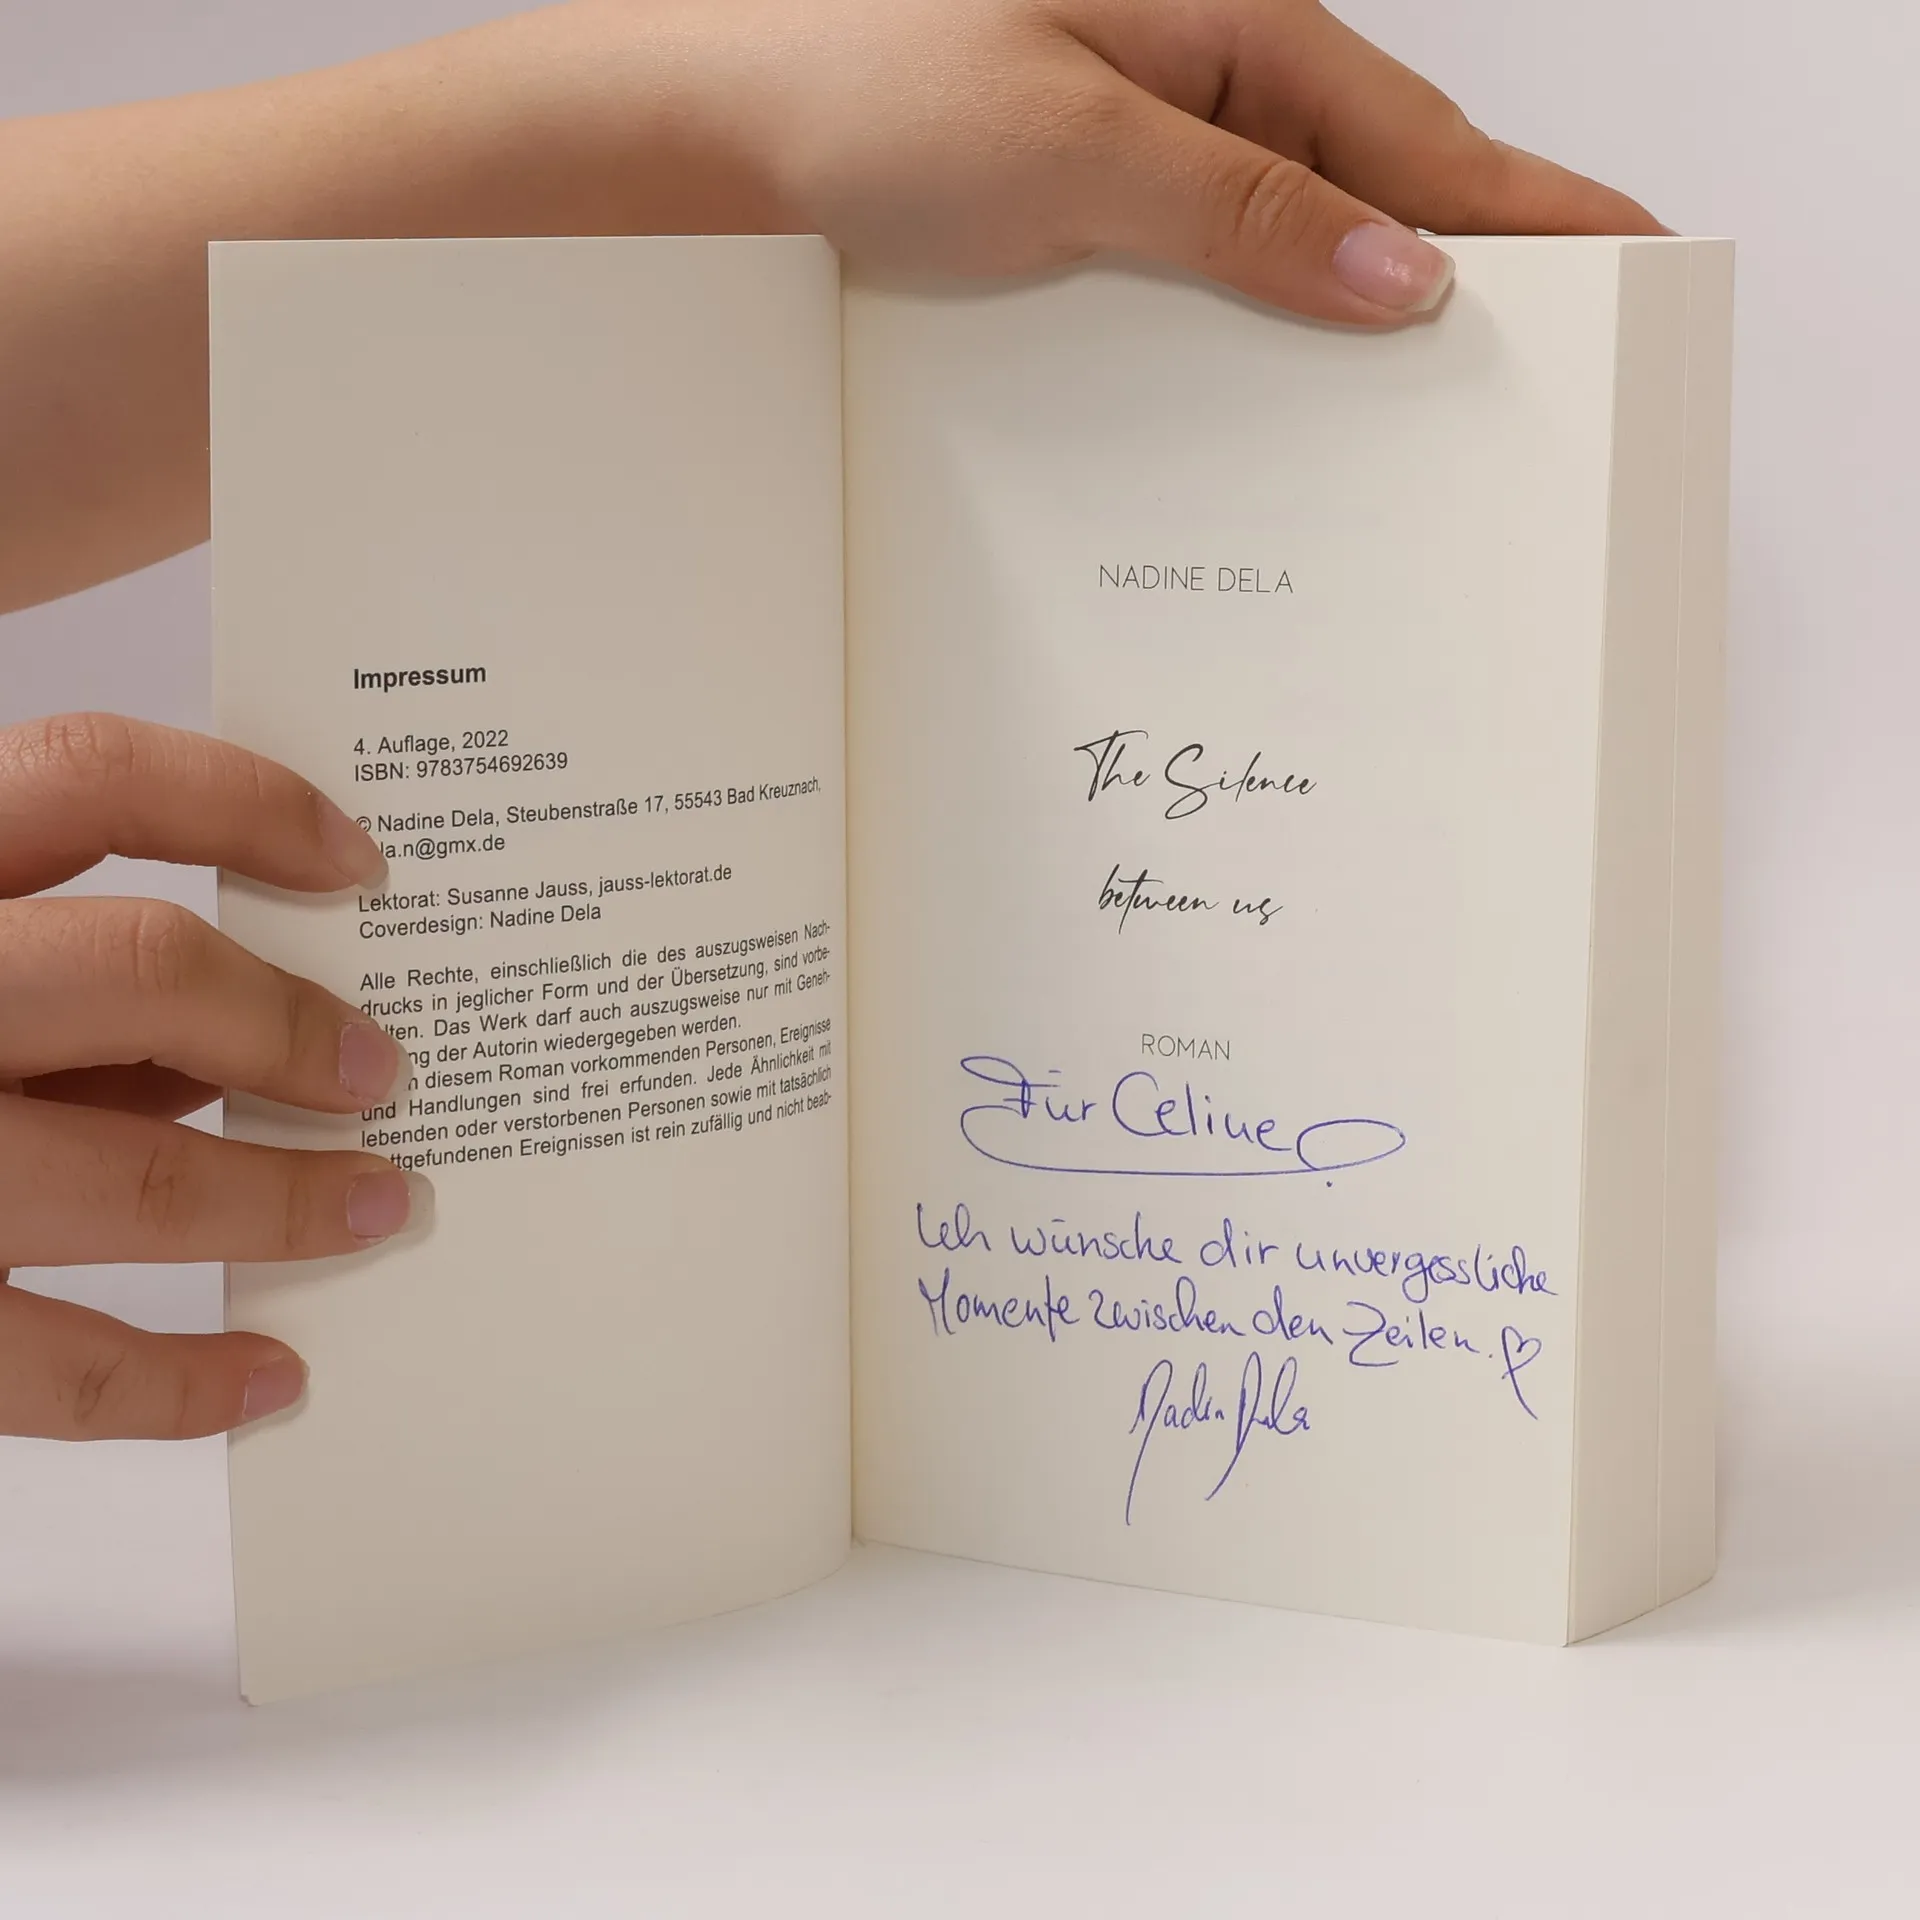 Impressum
4. Auflage, 2022
ISBN: 9783754692639
© Nadine Dela, Steubenstraße 17, 55543 Bad Kreuznach,
la.n@gmx.de
Lektorat: Susanne Jauss, jauss-lektorat.de
Coverdesign: Nadine Dela
Alle Rechte, einschließlich die des auszugsweisen Nach-
drucks in jeglicher Form und der Übersetzung, sind vorbe-
lten. Das Werk darf auch auszugsweise nur mit Geneh-
ng der Autorin wiedergegeben werden.
n diesem Roman vorkommenden Personen, Ereignisse
und Handlungen sind frei erfunden. Jede Ähnlichkeit mit
lebenden oder verstorbenen Personen sowie mit tatsächlich
ttgefundenen Ereignissen ist rein zufällig und nicht beab-
NADINE DELA
The Silence
between us
ROMAN
Für Celine
Ich wünsche dir unvergessliche
Momente zwischen den Zeilen.
Nadine Dela